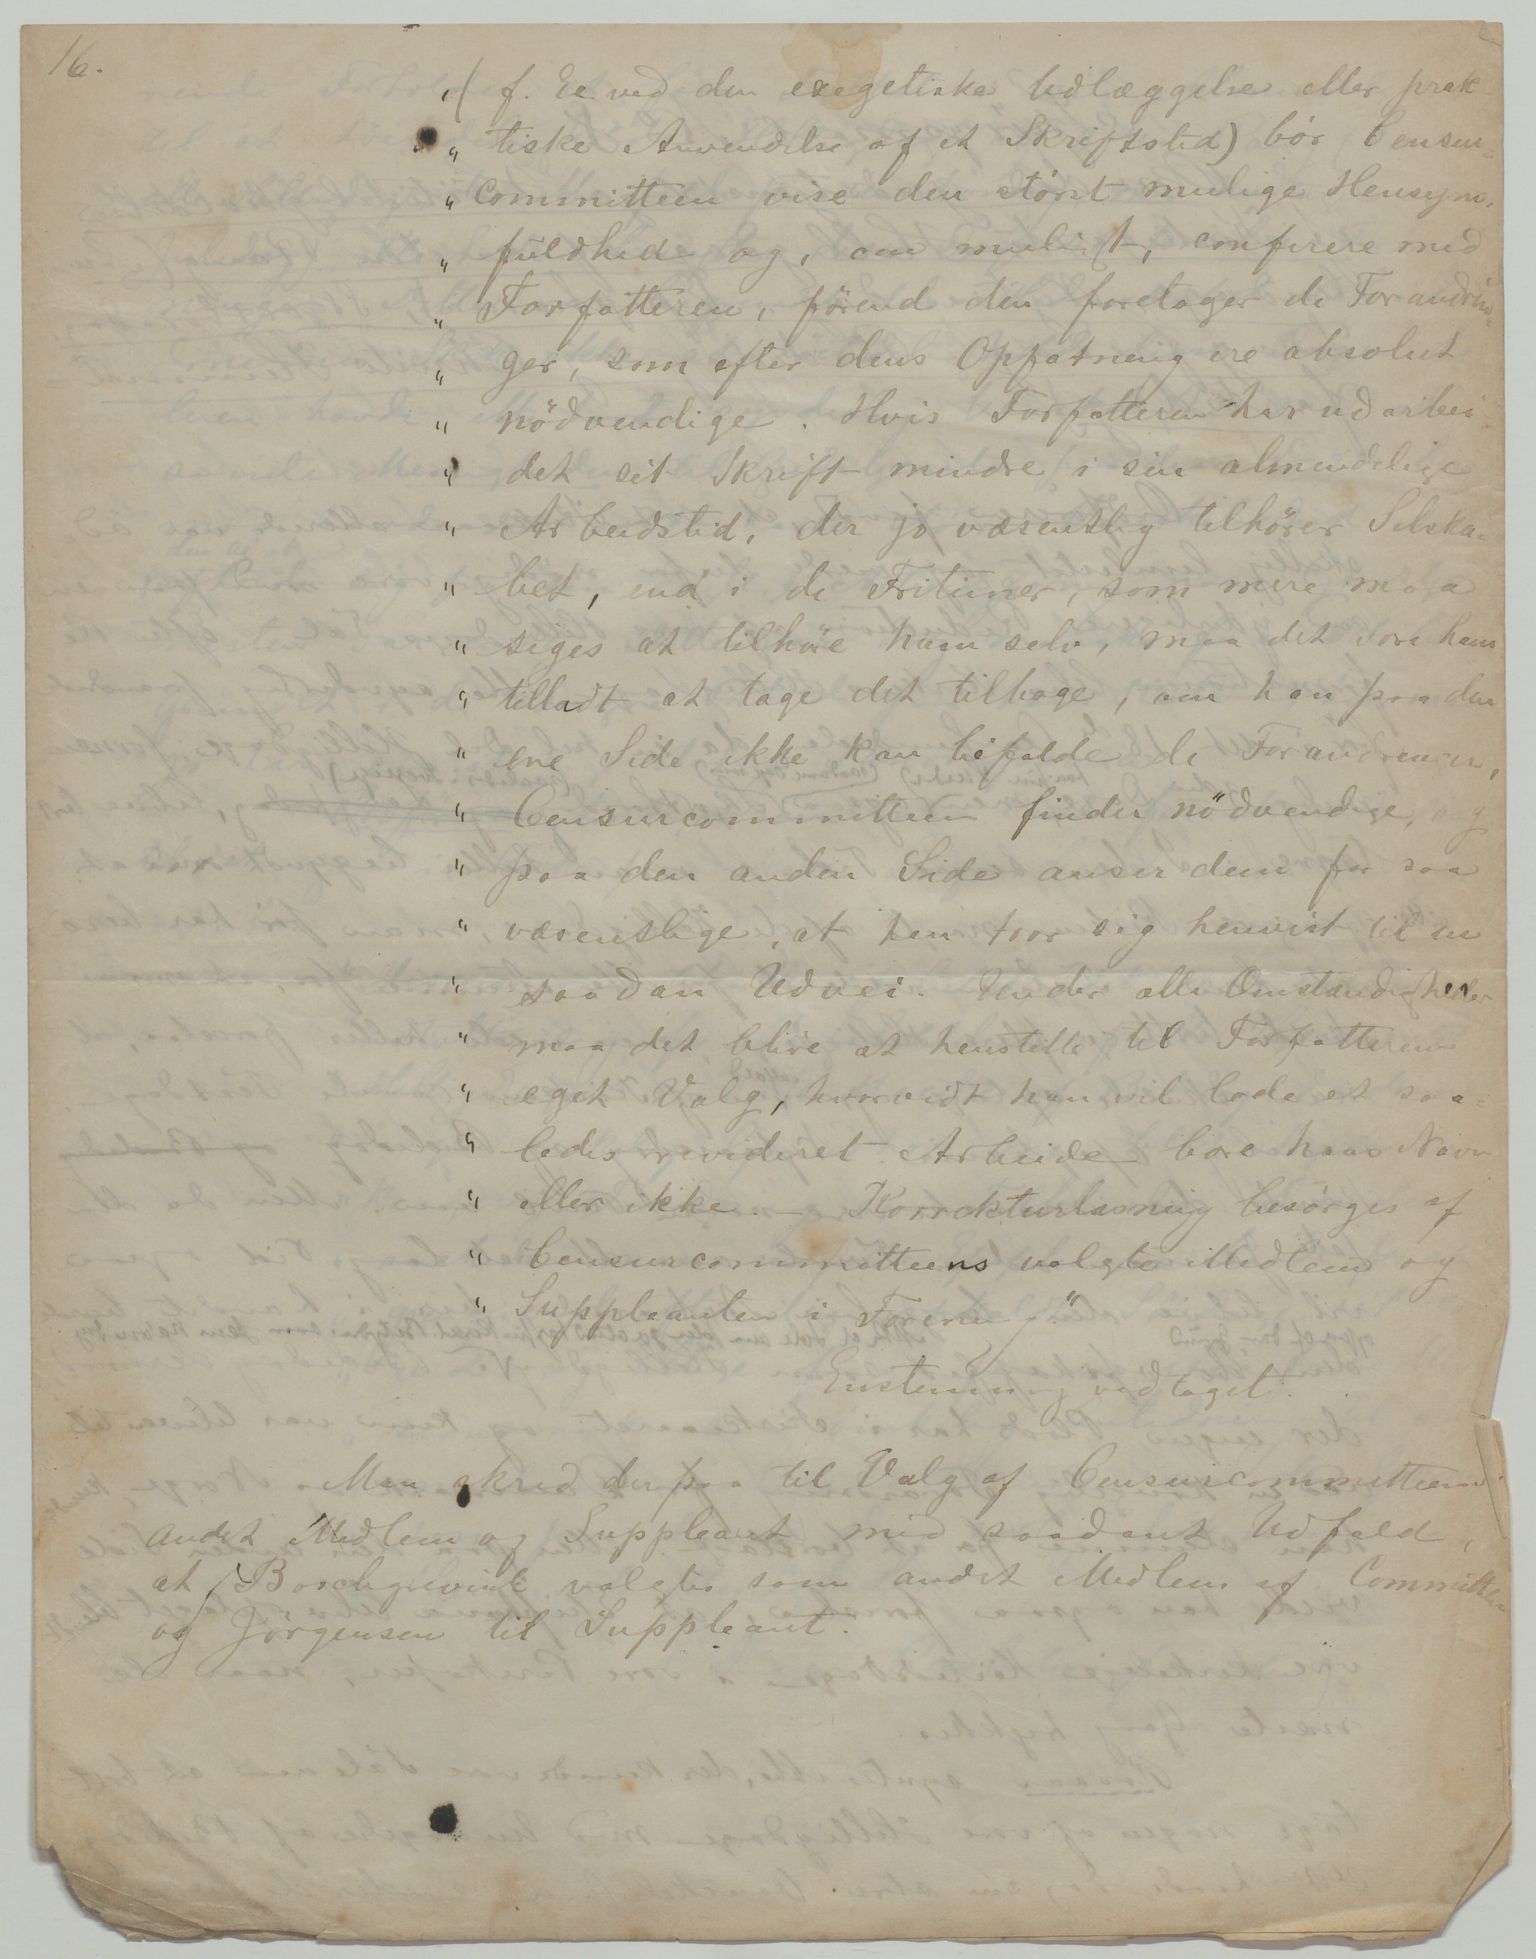 16.
„ ( f. Ex ved den exegetiske Udlæggelse eller prak-
„ tiske Anvendelse af et Skriftsted) bör Censur-
„ committeen vise den störst mulige Hensyns-
„ fuldhed og, om muligt, conferere med
„ Forfatteren, förend den foretager de Forandrin-
„ ger, som efter dens Opfatning ere absolut
„ nödvendige. Hvis Forfatteren har udarbei-
„ det sit Skrift mindre i sin almindelige
„ Arbeidstid, der jo væsentlig tilhörer Selska-
„ bet, end i de Fritimer, som mere maa
„ siges at tilhöre ham selv, maa det være ham
„ tilladt at tage det tilbage, om han paa den
„ ene Side ikke kan bifalde de Forandringer,
„ Censurcommitteen finder nödvendige, og
„ paa den anden Side anser dem for saa
„ væsentlige, at han tror sig henvist til en
„ saadan Udvei. Under alle Omstændigheder
„ maa det blive at henstille til Forfatterens
„ eget Valg, hvorvidt han vil lade et saa-
„ ledes revideret Arbeide bære hans Navn
„ eller ikke. — Korrekturlæsning besörges af
„ Censurcommitteens valgte Medlem og
„ Suppleanten i Forening."
Enstemmig vedtaget.
Man skred derpaa til Valg af Censurcommitteens
andet Medlem og Suppleant med saadant Udfald,
at Borchgrevink valgtes som andet Medlem af Committeen
og Jörgensen til Suppleant.